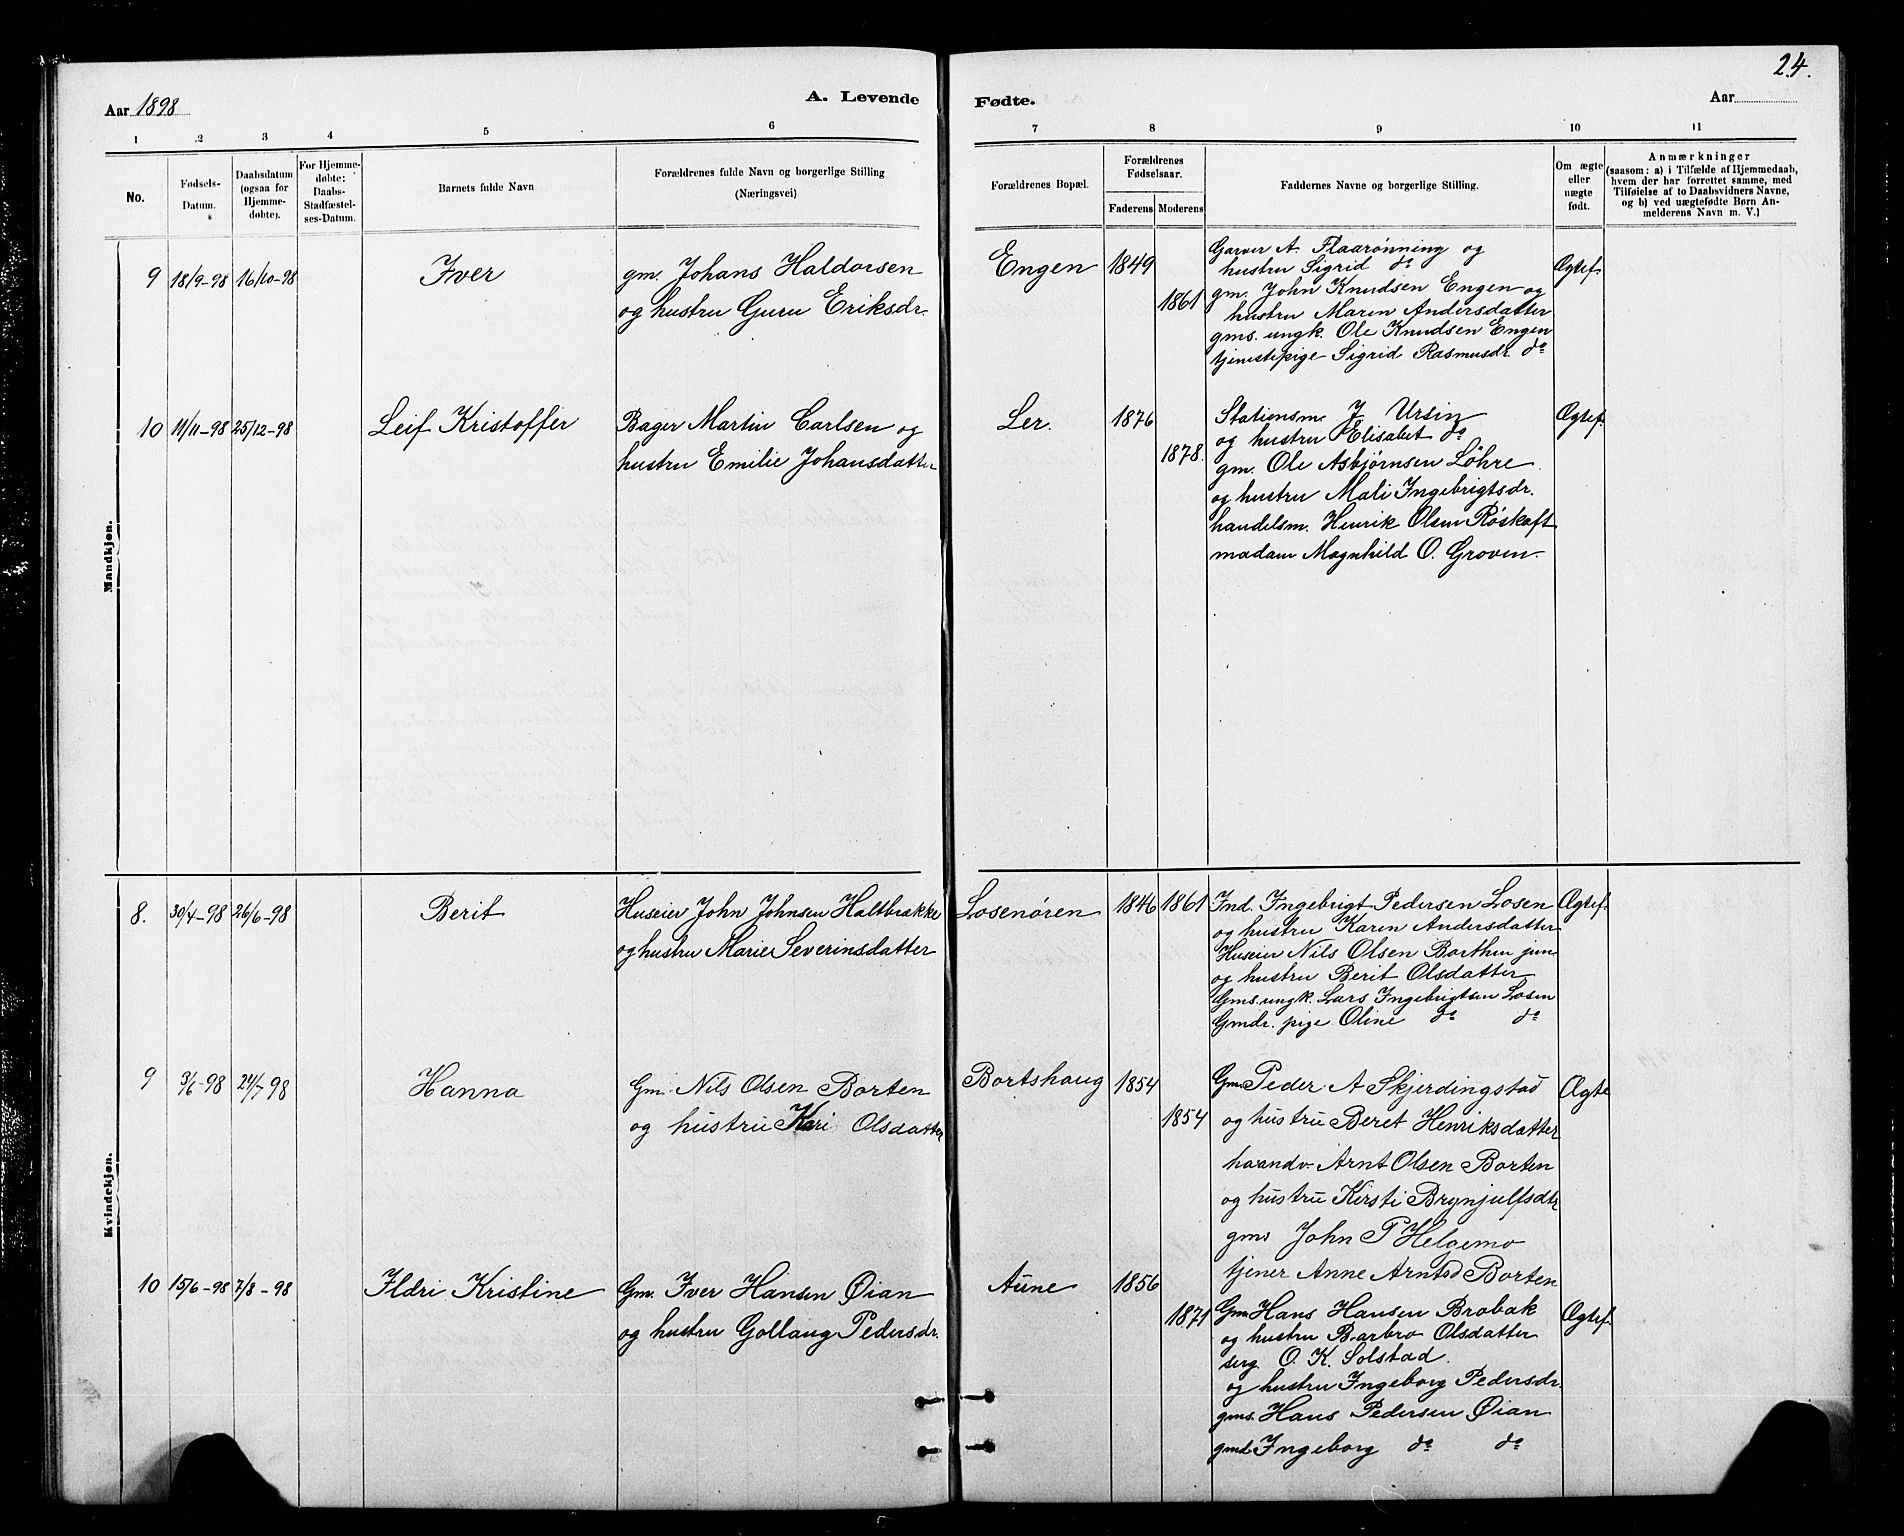 24.
Aar 1898
A. Levende Fødte.
Aar
1 2 3 4 5 6 7 8 9 10 11
No.
Fødsels-Datum.
Daabsdatum (ogsaa for Hjemmedøbte).
For Hjemmedøbte: Daabs-Stadfæstelses-Datum.
Barnets fulde Navn
Forældrenes fulde Navn og borgerlige Stilling (Næringsvei)
Forældrenes Bopæl.
Forældrenes Fødselsaar.
Faderens Moderens
Faddernes Navne og borgerlige Stilling.
Om ægte eller uægte født.
Anmærkninger (saasom: a) i Tilfælde af Hjemmedaab, hvem der har forrettet samme, med Tilføielse af to Daabsvidners Navne, og b) ved uægtefødte Børn Anmelderens Navn m. V.)
Mandkjøn.
9 18/9-98 16/10-98 Iver
gm. Johans Haldorsen
og hustru Guru Eriksdr.
Engen 1849
1861
Garver A. Flaarønning og
hustru Sigrid do
gm. John Knudsen Engen og
hustru Maren Andersdatter
gms. ungk. Ole Knudsen Engen
tjenestepige Sigrid Rasmusdr. do
Ægtef.
10 11/11-98 25/12-98 Leif Kristoffer
Bager Martin Carlsen og
hustru Emilie Johansdatter
Ler. 1876
1878.
Stationsm. J Ursin
og hustru Elisabet do
gm. Ole Asbjørnsen Løhre
og hustru Mali Ingebrigtsdr.
handelsm. Henrik Olsen Røskaft
madam Magnhild O. Groven.
Ægtef.
Kvindekjøn.
8. 30/4-98 26/6-98 Berit
Huseier John Johnsen Haltbrække
og hustru Marie Severinsdatter
Losenøren 1846 1861
Ind. Ingebrigt Pedersen Losen
og hustru Karen Andersdatter
Huseier Nils Olsen Borthen jun.
og hustru Berit Olsdatter
Gms. ungk. Lars Ingebrigtsen Losen
Gmdr. pige Oline do do
Ægtef.
9 3/6-98 24/7-98 Hanna
Gm. Nils Olsen Borten
og hustru Kari Olsdatter
Bortshaug 1854
1854
Gm. Peder A Skjerdingstad
og hustru Beret Henriksdatter
haandv. Arnt Olsen Borten
og hustru Kirsti Brynjulfsdtr
gms John P Helgemo
tjener Anne Arntsd Borten
Ægte
10 15/6-98 7/8-98 Ildri Kristine
Gm. Iver Hansen Øian
og hustru Gollaug Pedersdr.
Aune 1856
1871
Gm Hans Hansen Brabak
og hustru Barbro Olsdatter
serg. O. K. Solstad.
og hustru Ingeborg Pedersdr.
gms. Hans Pedersen Øian
gmd. Ingeborg do do
Ægtef.